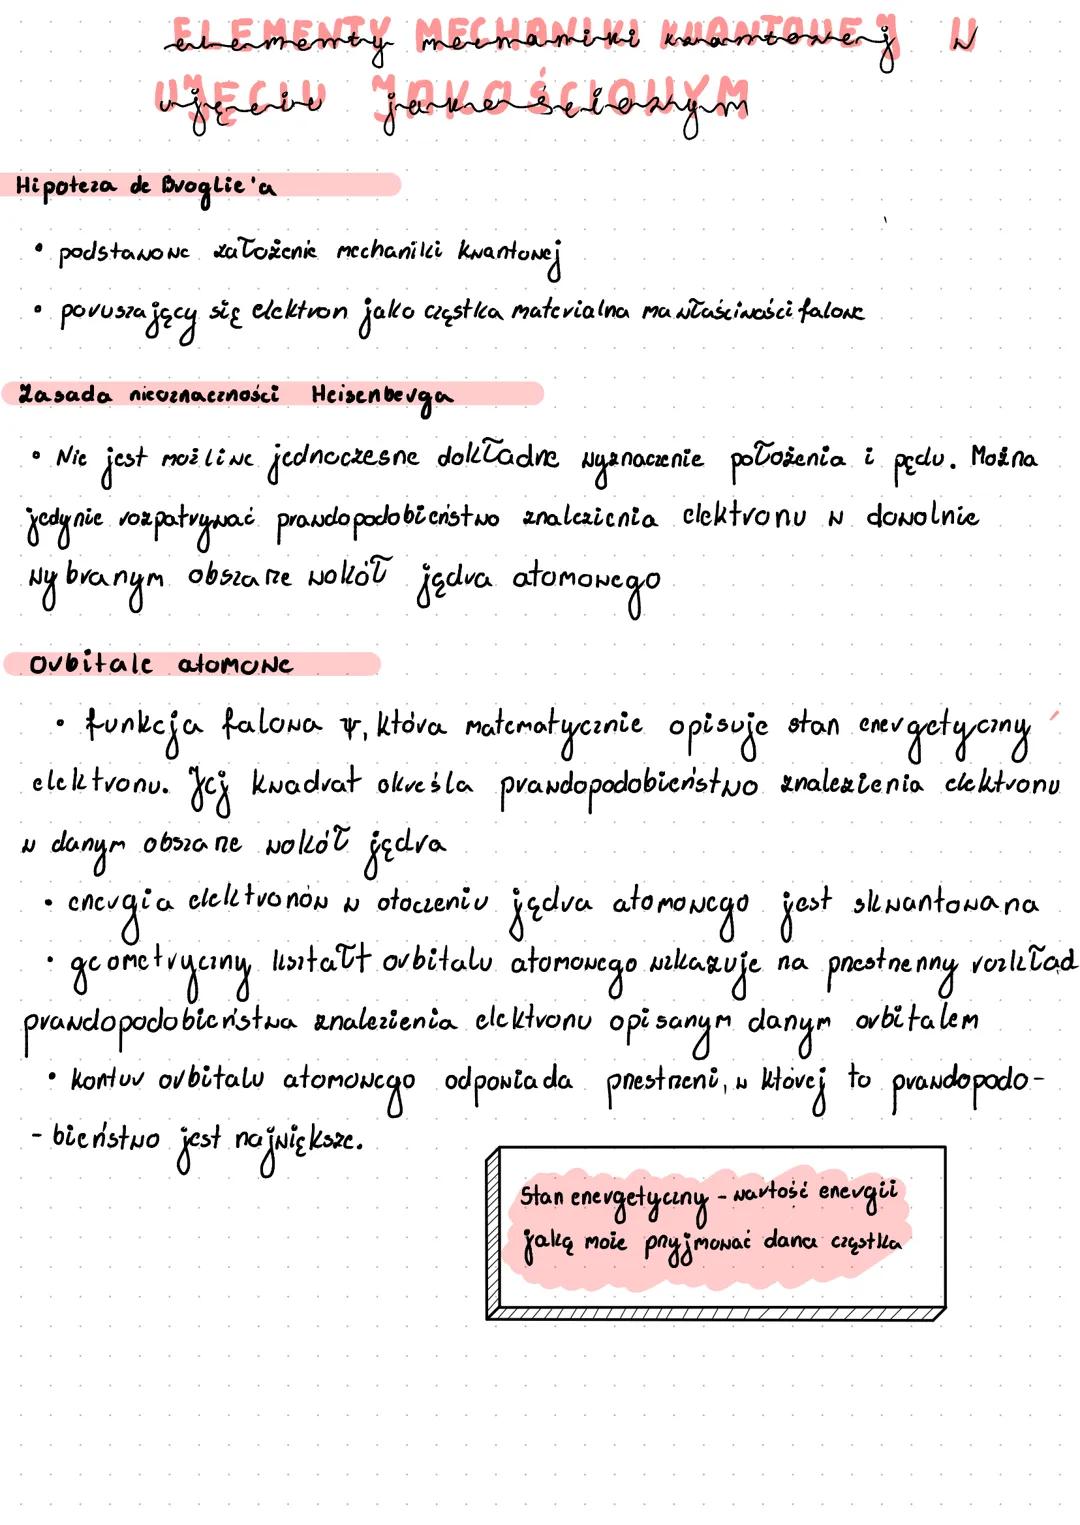 ELEMENTY MECHANIKI KWANTOWEJ W
elementy mechaniki kwantowej
UJĘCIU JAKOŚCIOWYM
ujęciu jakościowym
Hipoteza de Broglie'a
• podstawowe założenie mechaniki kwantowej
• poruszający się elektron jako cząstka materialna ma właściwości falowe
Zasada nieoznaczności Heisenberga
• Nie jest możliwe jednoczesne dokładne wyznaczenie położenia i pędu. Można
jedynie rozpatrywać prawdopodobieństwo znalezienia elektronu w dowolnie
wybranym obszarze wokół jądra atomowego
Orbitale atomowe
• funkcja falowa Ψ, która matematycznie opisuje stan energetyczny
elektronu. Jej kwadrat określa prawdopodobieństwo znalezienia elektronu
w danym obszarze wokół jądra
• energia elektronów w otoczeniu jądra atomowego jest skwantowana
• geometryczny kształt orbitalu atomowego wskazuje na przestrzenny rozkład
prawdopodobieństwa znalezienia elektronu opisanym danym orbitalem
• kontur orbitalu atomowego odpowiada przestrzeni, w której to prawdopodo-
-bieństwo jest największe.
Stan energetyczny - wartość energii
jaką może przyjmować dana cząstka